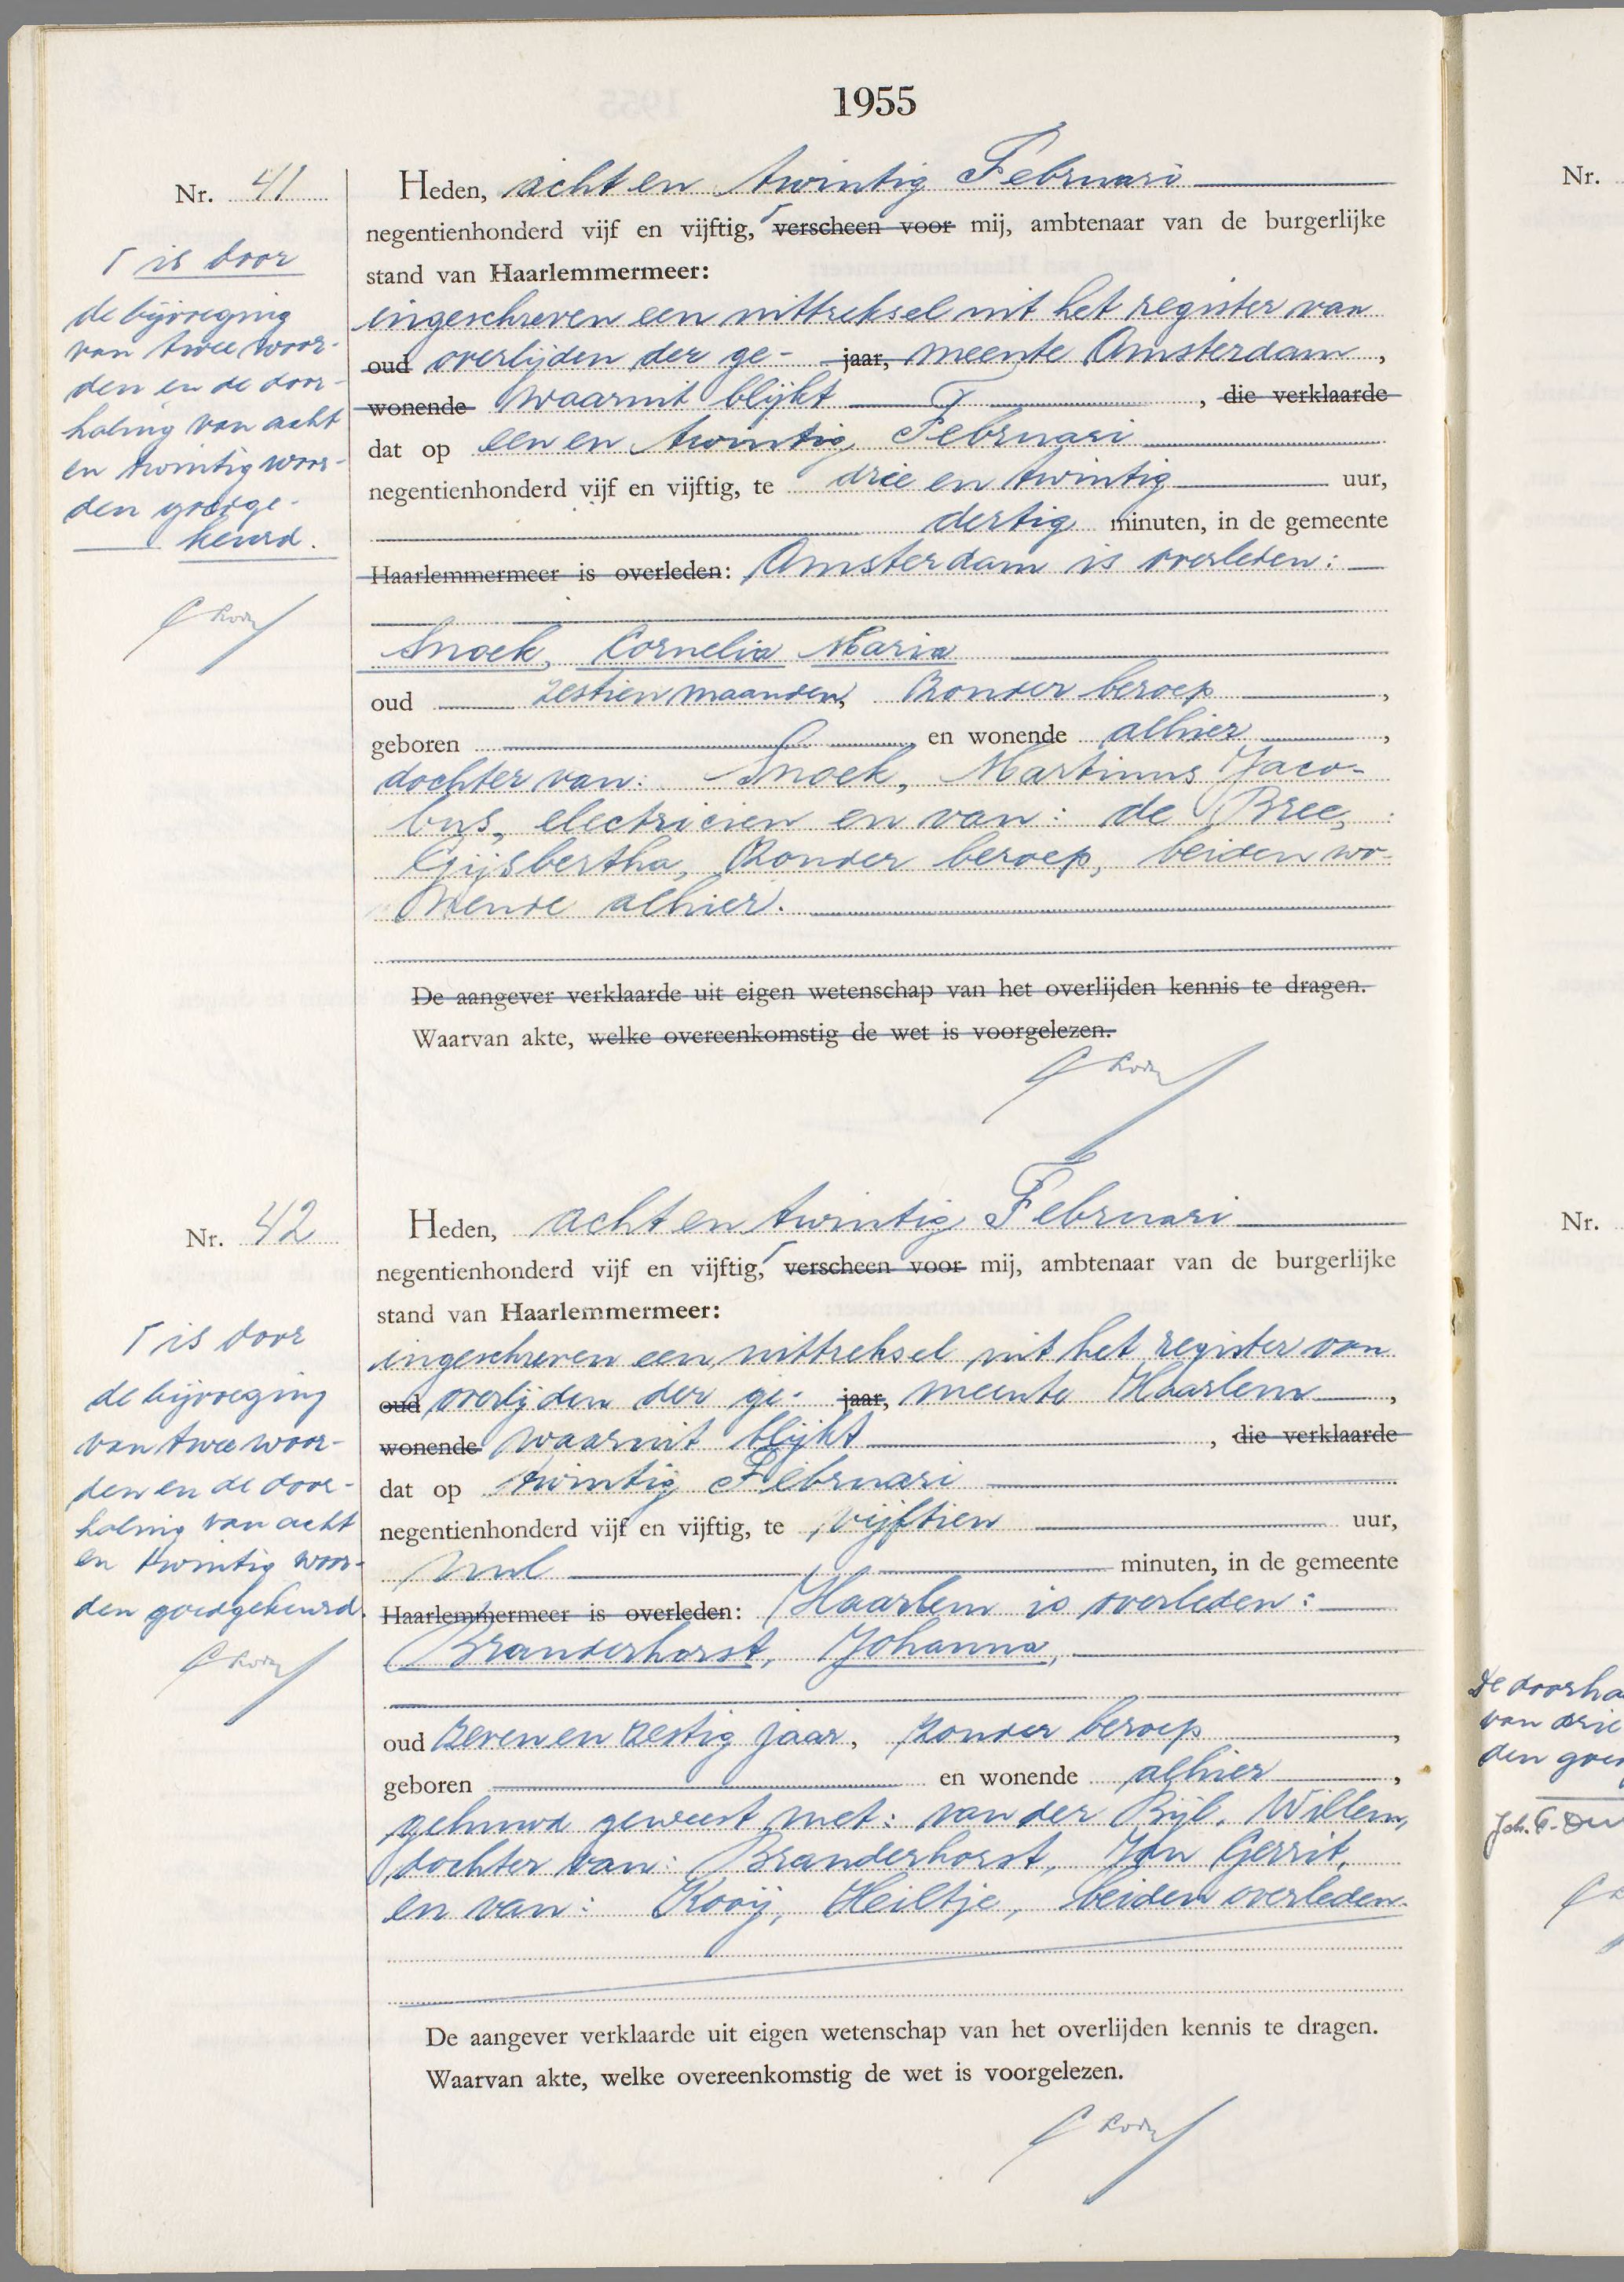 1955
Nr. 41
Heden, acht en twintig Februari
negentienhonderd vijf en vijftig, ┌ verscheen voor mij, ambtenaar van de burgerlijke
stand van Haarlemmermeer:
ingeschreven een uittreksel uit het register van
oud overlijden der ge- jaar, meente Amsterdam,
wonende waaruit blijkt , die verklaarde
dat op een en twintig Februari
negentienhonderd vijf en vijftig, te drie en twintig uur,
dertig minuten, in de gemeente
Haarlemmermeer is overleden: Amsterdam is overleden:
Snoek, Cornelia Maria
oud zestien maanden, zonder beroep,
geboren en wonende alhier,
dochter van: Snoek, Martinus Jaco-
bus, electricien en van: de Bree,
Gijsbertha, zonder beroep, beiden wo-
nende alhier.
De aangever verklaarde uit eigen wetenschap van het overlijden kennis te dragen.
Waarvan akte, welke overeenkomstig de wet is voorgelezen.
┌ is door
de bijvoeging
van twee woor-
den en de door-
haling van acht
en twintig woor-
den goedge-
keurd.
Nr. 42
Heden, acht en twintig Februari
negentienhonderd vijf en vijftig, ┌ verscheen voor mij, ambtenaar van de burgerlijke
stand van Haarlemmermeer:
ingeschreven een uittreksel uit het register van
oud overlijden der ge- jaar, meente Haarlem,
wonende waaruit blijkt , die verklaarde
dat op twintig Februari
negentienhonderd vijf en vijftig, te vijftien uur,
nul minuten, in de gemeente
Haarlemmermeer is overleden: Haarlem is overleden:
Branderhorst, Johanna,
oud zeven en zestig jaar, zonder beroep,
geboren en wonende alhier,
gehuwd geweest met: van der Bijl, Willem,
dochter van: Branderhorst, Jan Gerrit,
en van: Kooij, Heiltje, beiden overleden.
De aangever verklaarde uit eigen wetenschap van het overlijden kennis te dragen.
Waarvan akte, welke overeenkomstig de wet is voorgelezen.
┌ is door
de bijvoeging
van twee woor-
den en de door-
haling van acht
en twintig woor-
den goedgekeurd.
Nr.
Nr.
De doorha
van drie
den goe